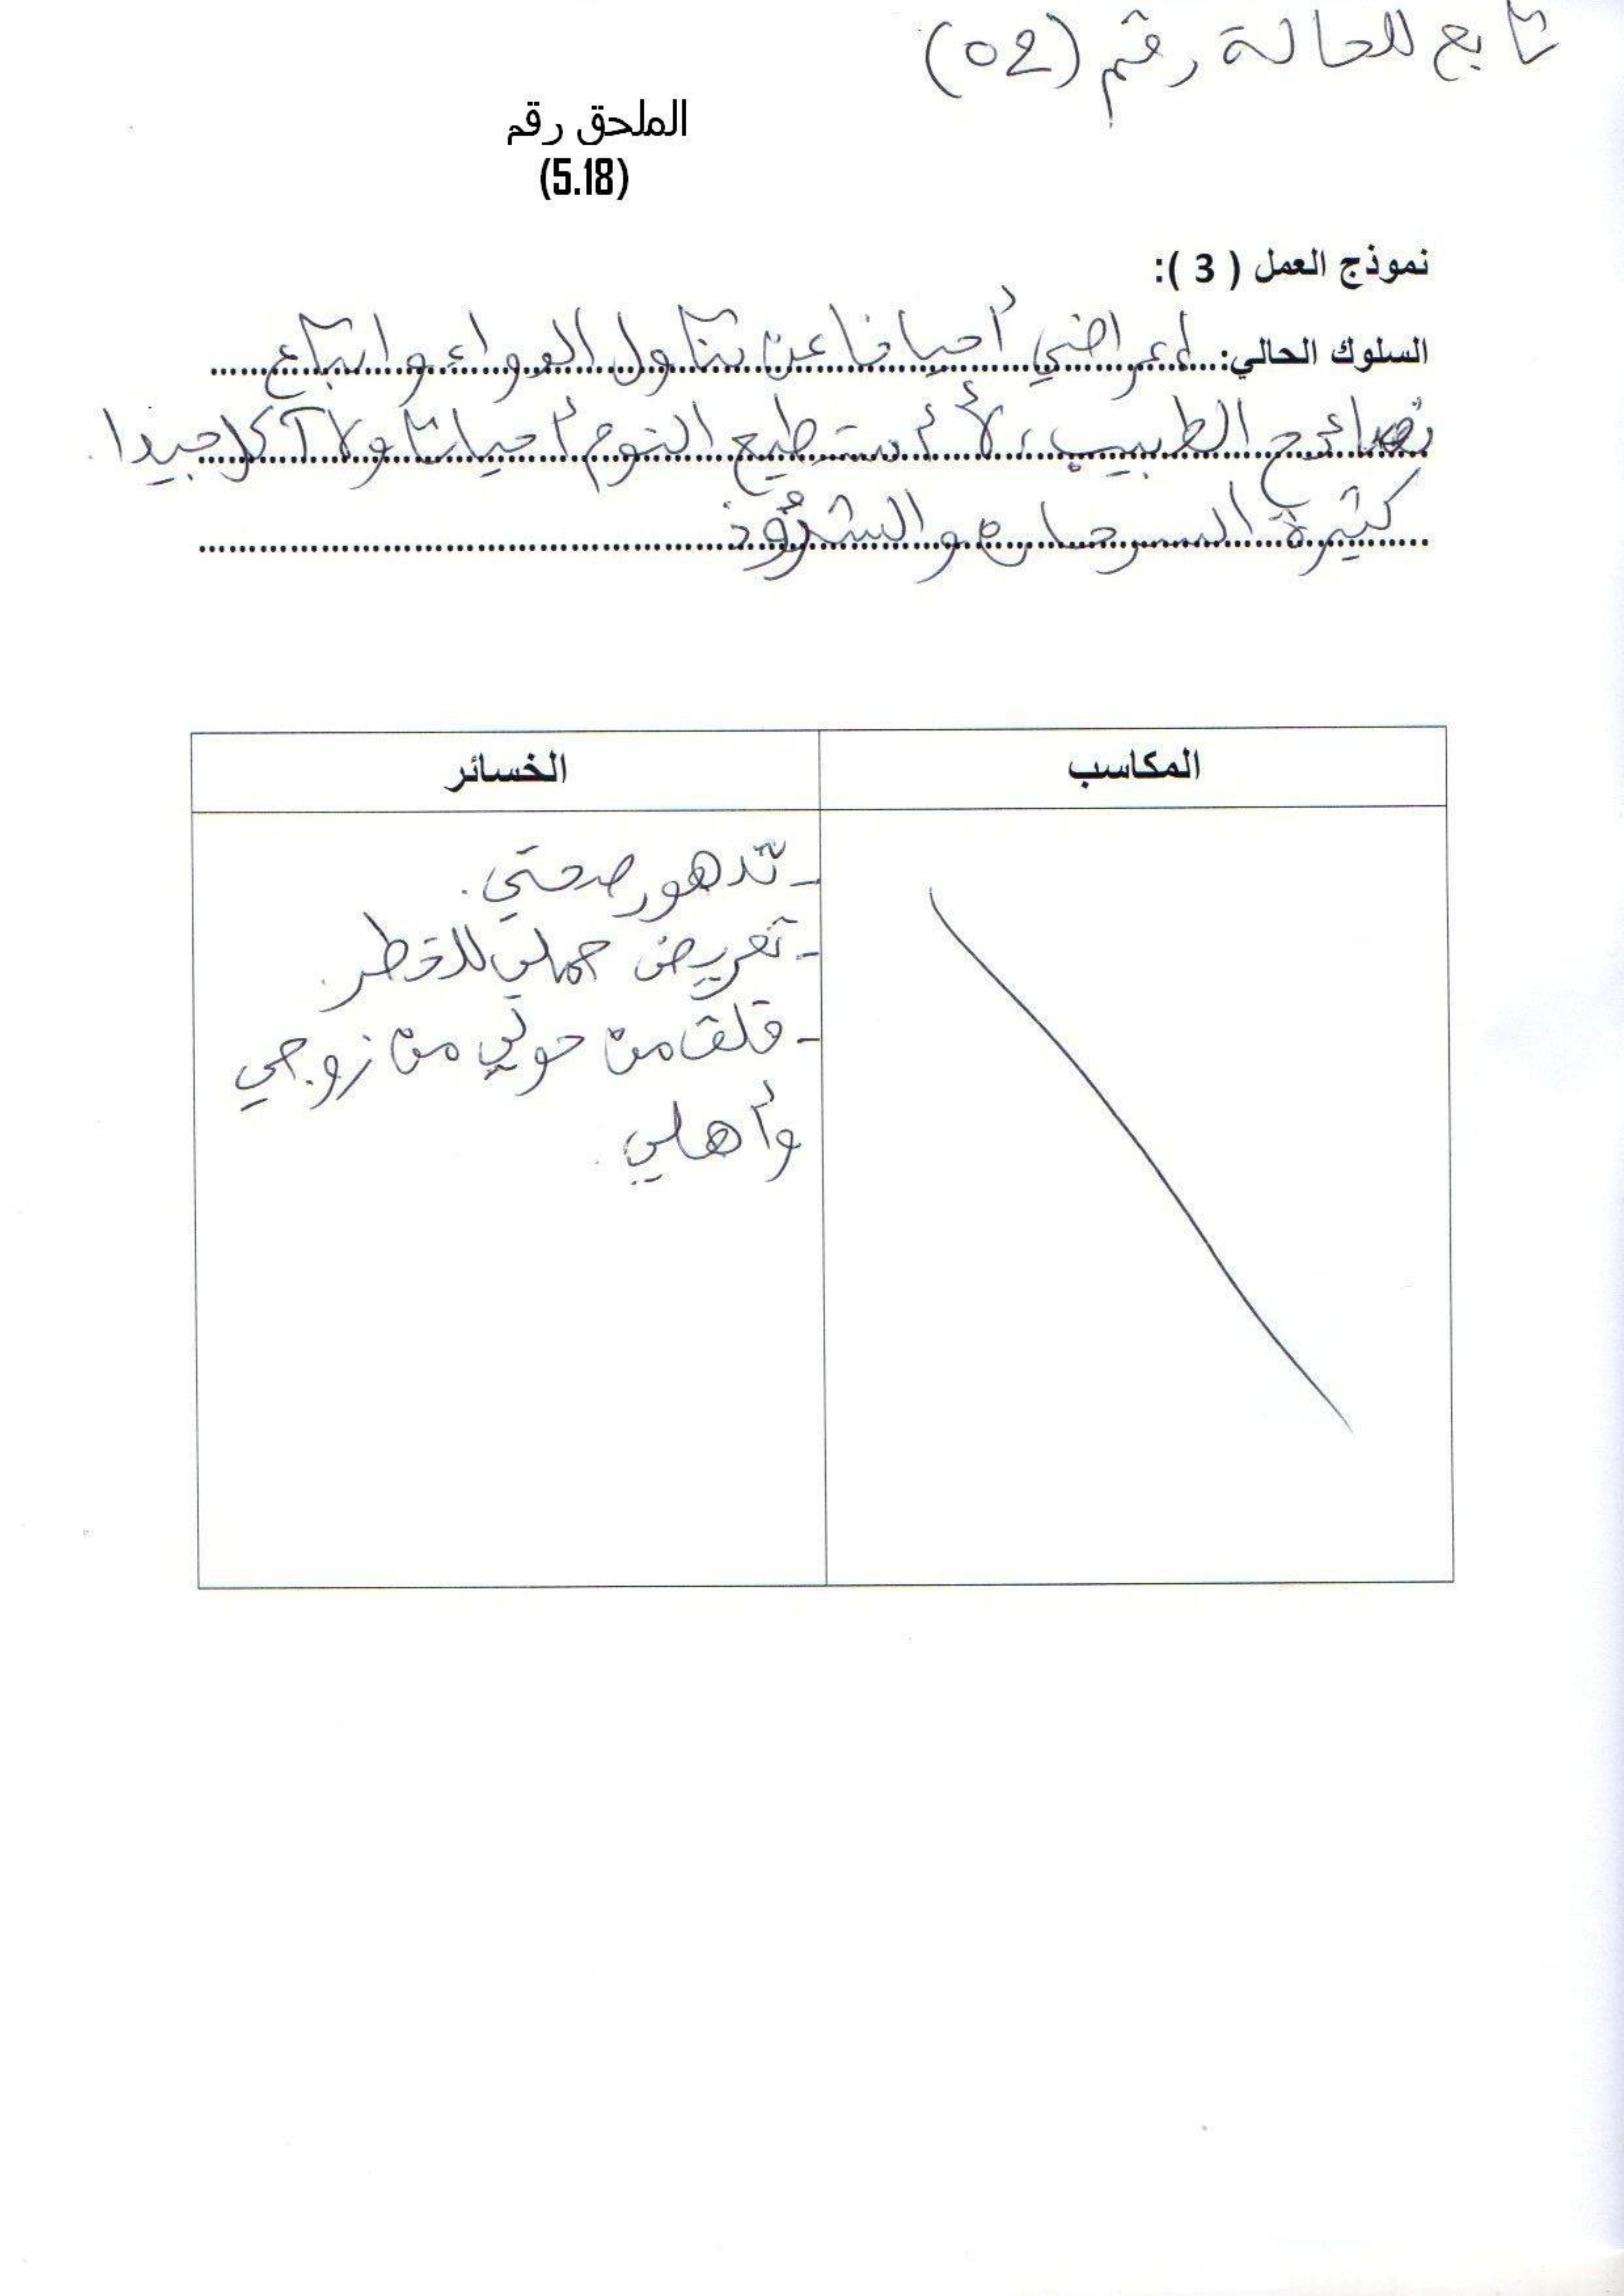 تابع للحالة رقم (02)
الملحق رقم
(5.18)
نموذج العمل ( 3 ):
السلوك الحالي: إعراضي أحيانا عن تناول الدواء واتباع
نصائح الطبيب، لا أستطيع النوم أحيانا ولا آكل جيدا.
كثيرة السرحان والشرود
المكاسب
الخسائر
- تدهور صحتي.
- تعريض حملي للخطر.
- قلق من حولي من زوجي
وأهلي.